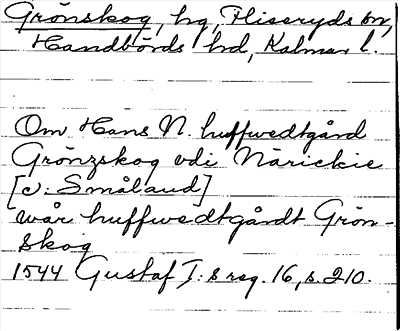 Grönskog, hg, Fliseryds sn,
Handbörds hd, Kalmar l.
Om Hans N. huffwedtgård
Grönzskog vdi Närickie
[ɔ: Småland]
wår huffwedtgårdt Grön-
skog
1544 Gustaf I:s reg. 16, s. 210.